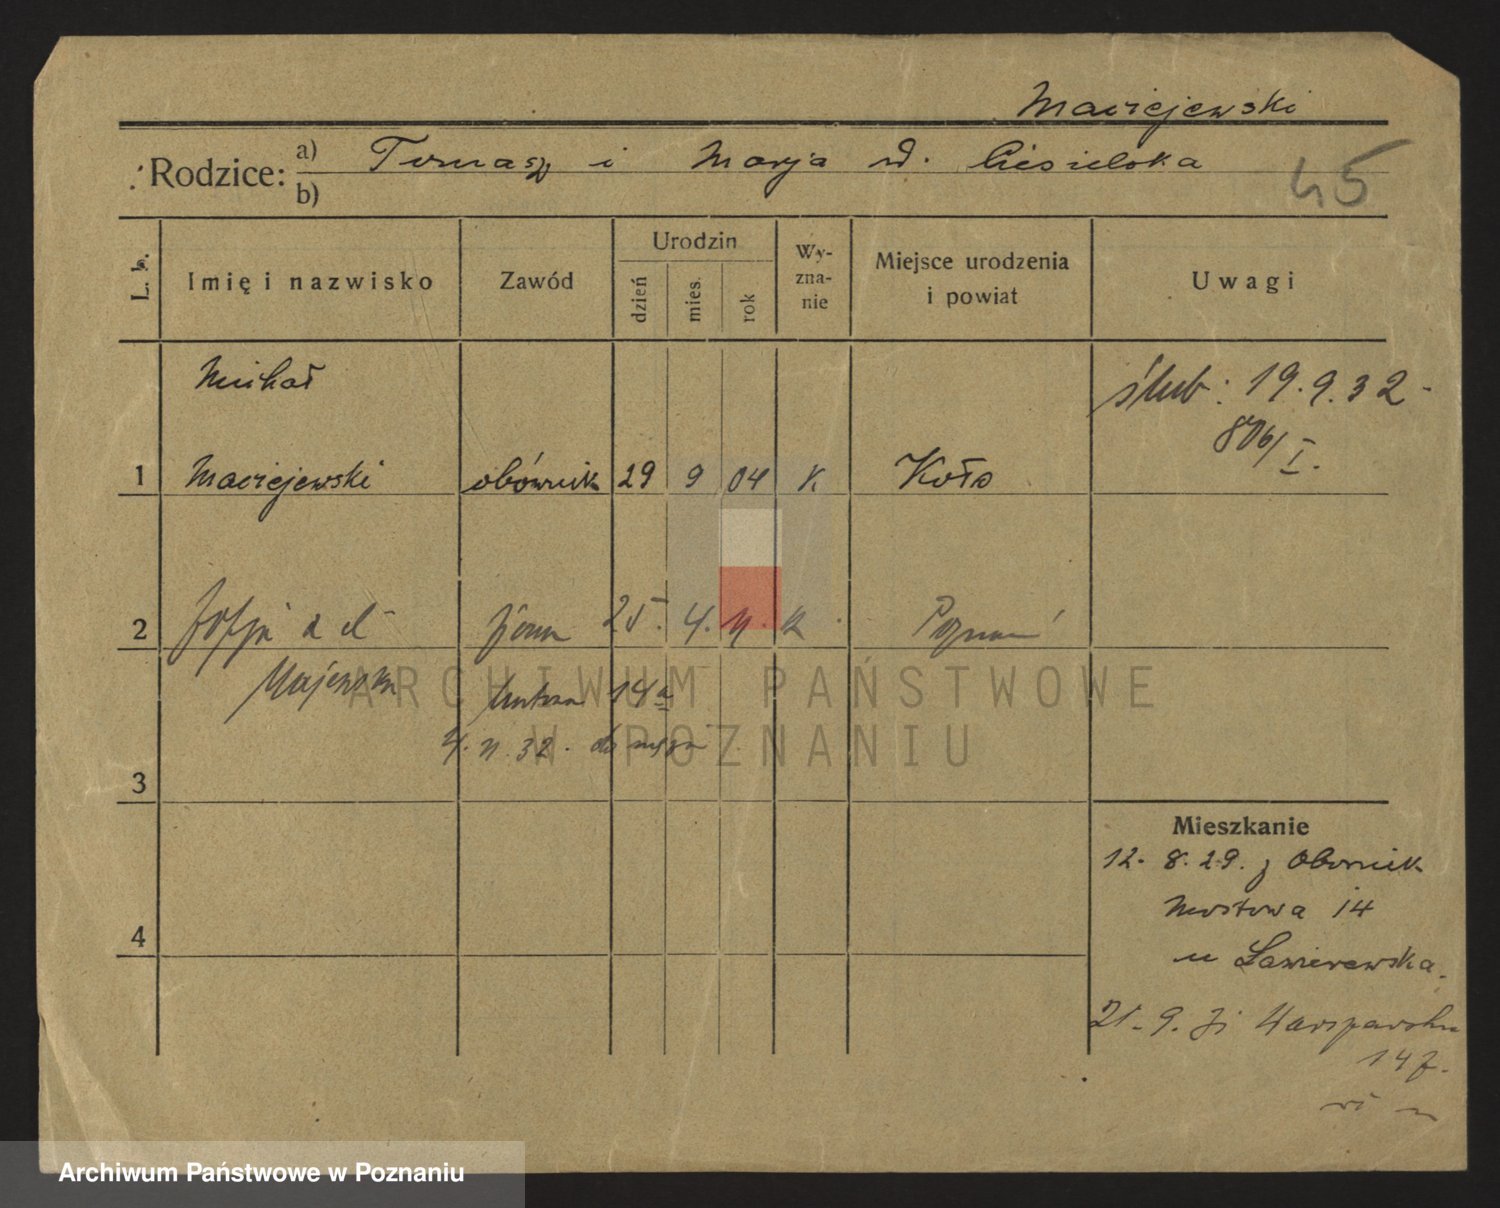 Maciejewski
Rodzice: a) Tomasz i Marja d. Ciesielska
b)
45
L. b.
Imię i nazwisko
Zawód
Urodzin
dzień
mies.
rok
Wy-
zna-
nie
Miejsce urodzenia
i powiat
Uwagi
Michał
ślub: 19.9.32 -
806/I.
1 Maciejewski obównik 29 9 04 K. Koło
2 Zofja z d. żona 25. 4. 11. k. Poznań
Majewska
14a
ARCHIWUM PAŃSTWOWE
4. 11. 32. do męża
W POZNANIU
3
Mieszkanie
12. 8. 29. z Obornik
Mostowa 14
4
u
21. 9. 31 Warszawska
14
Archiwum Państwowe w Poznaniu